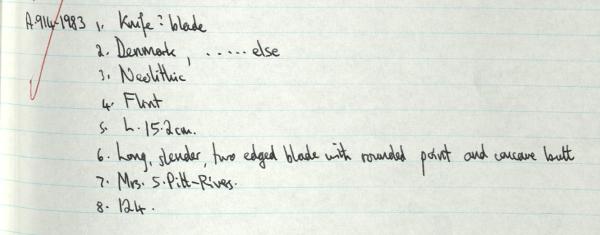 A.914-1983 1. Knife: blade
2. Denmark, ..... else
3. Neolithic
4. Flint
5. L. 15.2cm.
6. Long, slender, two edged blade with rounded point and concave butt
7. Mrs. S. Pitt-Rivers.
8. 124.